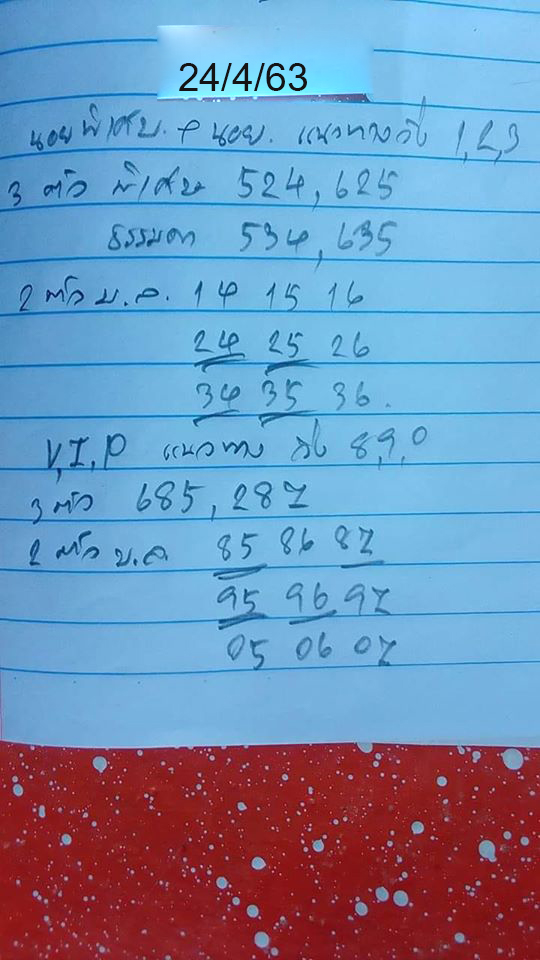 24/4/63
นอยพิเศษ. + นอย. แนวทางวิ่ง 1,2,3
3 ตัว พิเศษ 524,625
ธรรมดา 534,635
2 ตัว บ.ล. 14 15 16
24 25 26
34 35 36.
V,I,P แนวทาง วิ่ง 8,9,0
3 ตัว 685,287
2 ตัว บ.ล. 85 86 87
95 96 97
05 06 07